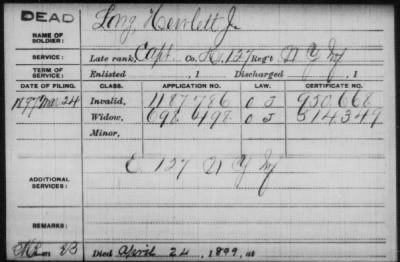 DEAD
NAME OF SOLDIER: Long, Hewlett Jr
SERVICE: Late rank, Capt. Co. H, 127 Reg't N Y Inf
TERM OF SERVICE: Enlisted , 1 Discharged , 1
DATE OF FILING. CLASS. APPLICATION NO. LAW. CERTIFICATE NO.
1897 Mar 24 Invalid, 1187786 O J 950668
Widow, 698498 O J 514349
Minor,
ADDITIONAL SERVICES: E 127 N Y Inf
REMARKS:
Died April 24, 1899, at